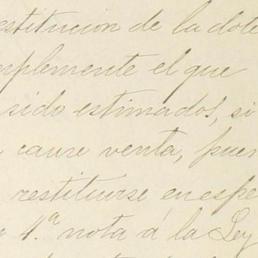 estitucion de la dote
mplemente el que
sido estimados, si
cause venta, pues
restituirse en espe
4.ª nota á la Ley